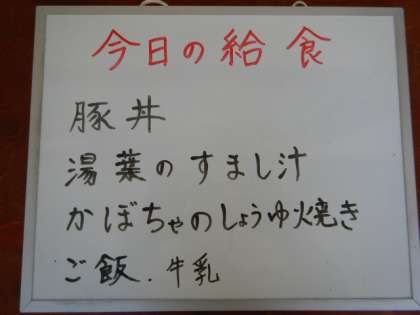 今日の給食
豚丼
湯葉のすまし汁
かぼちゃのしょうゆ焼き
ご飯.牛乳